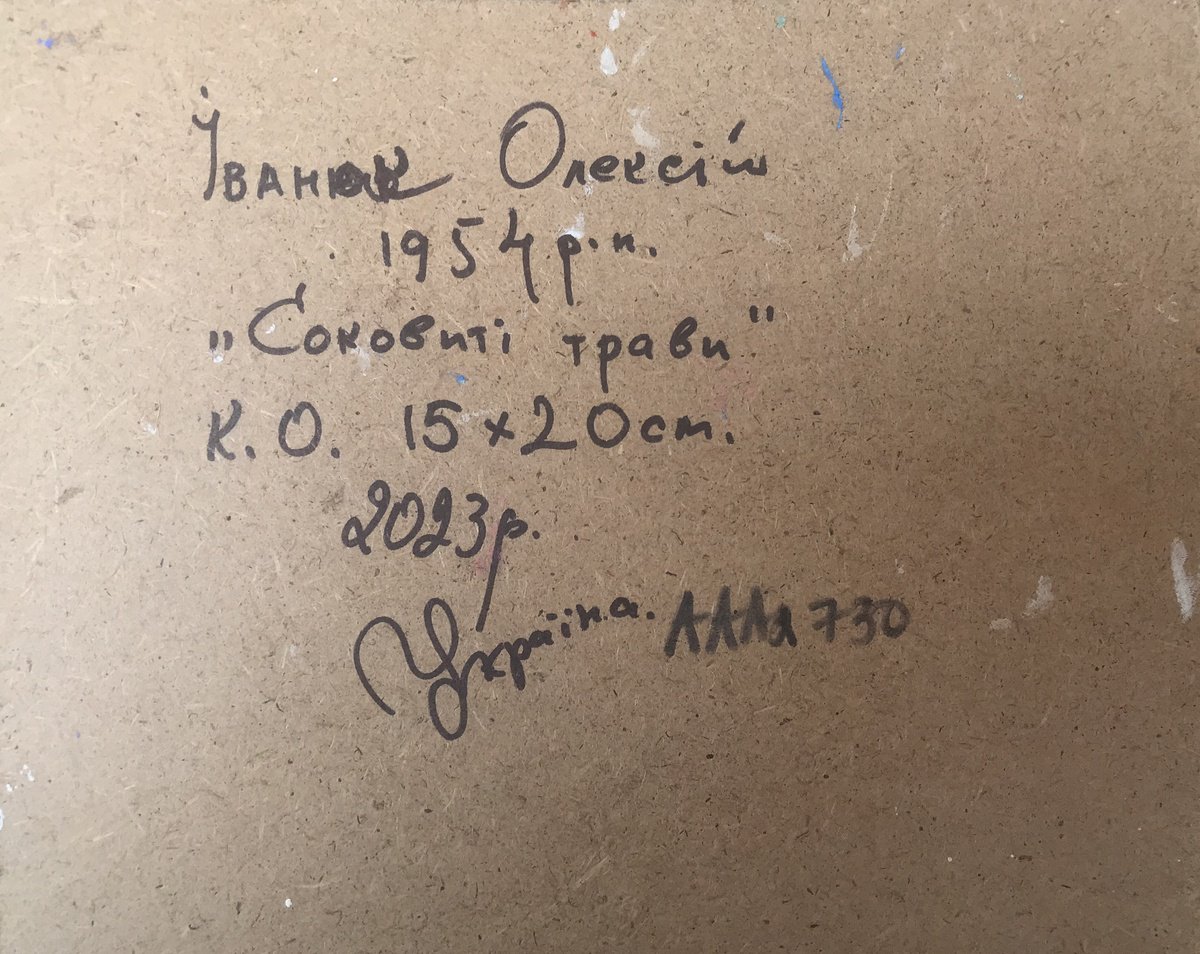 Іванюк Олексій
1954 р.н.
"Соковиті трави"
К.О. 15×20см.
2023р.
Україна. АААя 730